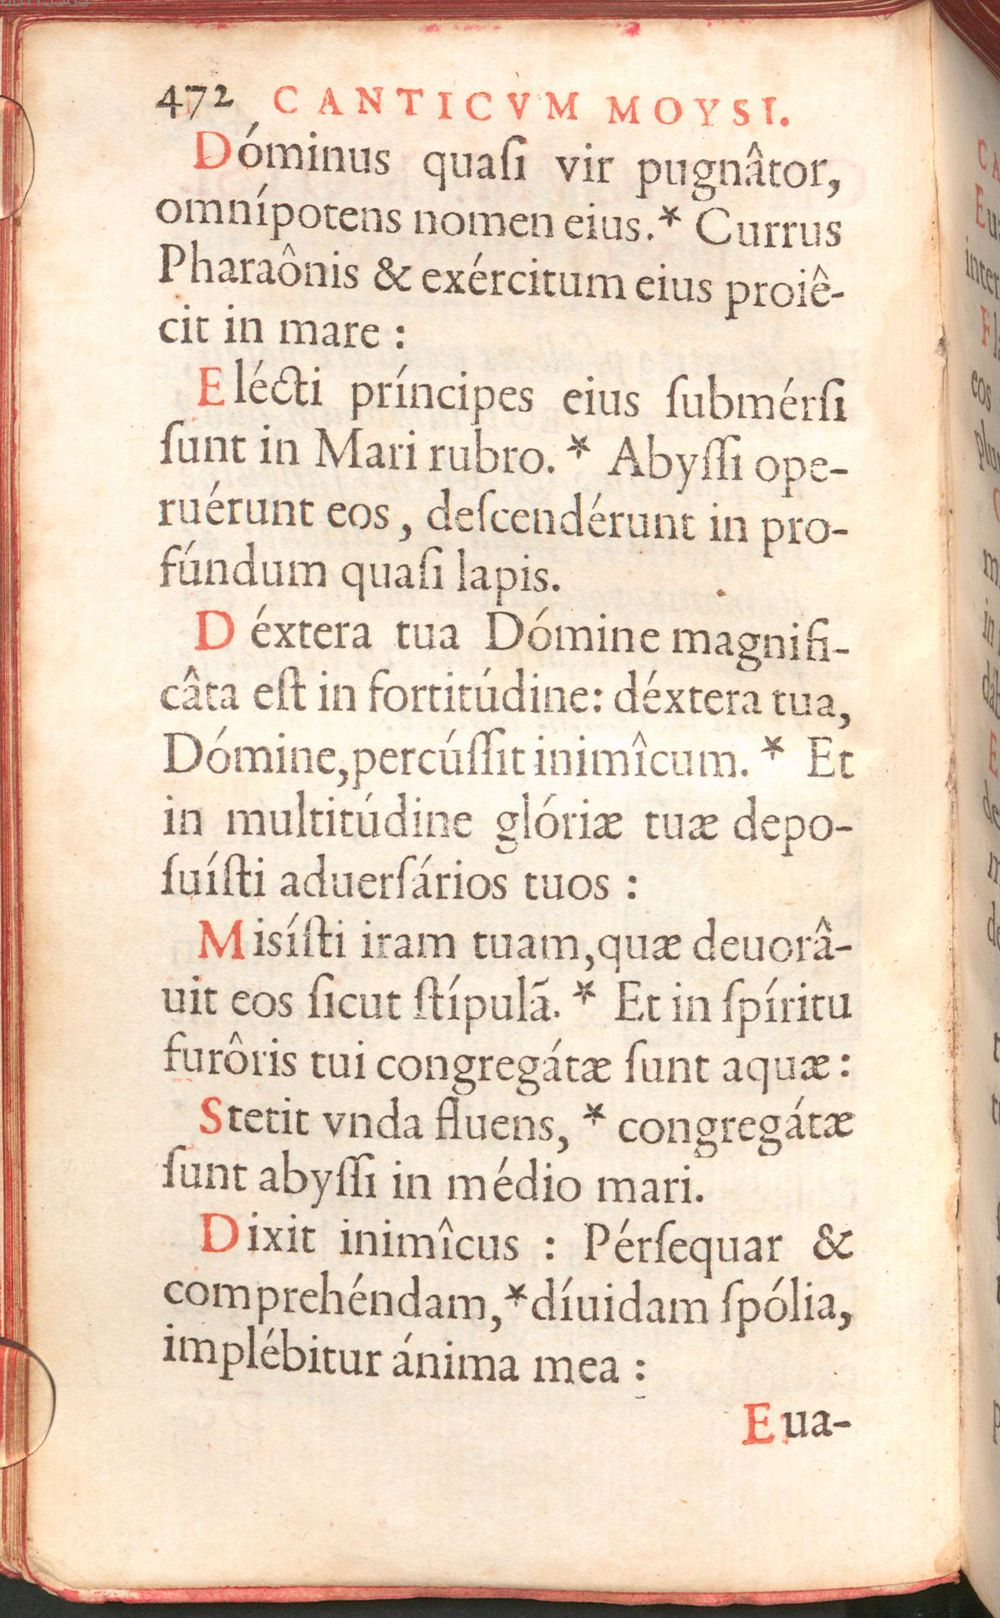 472 CANTICVM MOYSI.
Dóminus quaſi vir pugnâtor,
omnípotens nomen eius.* Currus
Pharaônis & exércitum eius proiê-
cit in mare :
Elécti príncipes eius ſubmérſi
ſunt in Mari rubro. * Abyſſi ope-
ruérunt eos, deſcendérunt in pro-
fúndum quaſi lapis.
Déxtera tua Dómine magnifi-
câta eſt in fortitúdine: déxtera tua,
Dómine, percúſſit inimîcum. * Et
in multitúdine glóriæ tuæ depo-
ſuíſti aduerſários tuos :
Misíſti iram tuam, quæ deuorâ-
uit eos ſicut ſtípulã. * Et in ſpíritu
furôris tui congregátæ ſunt aquæ :
Stetit vnda fluens, * congregátæ
ſunt abyſſi in médio mari.
Dixit inimîcus : Pérſequar &
comprehéndam, * díuidam ſpólia,
implébitur ánima mea :
Eua-